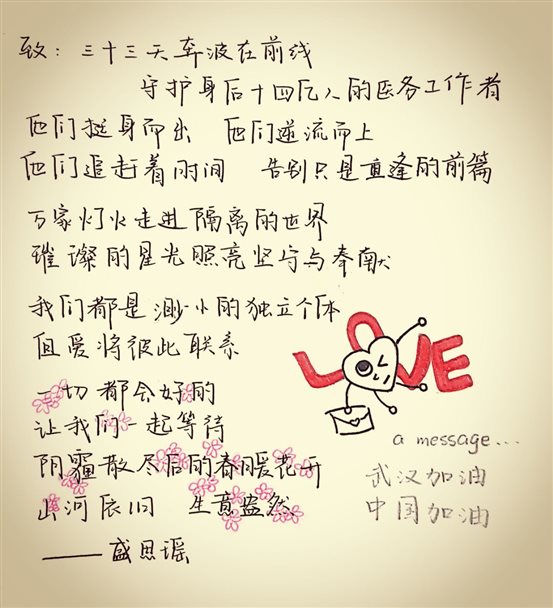 致：三十三天奔波在前线
守护身后十四亿人的医务工作者
他们挺身而出　他们逆流而上
他们追赶着时间　告别只是重逢的前篇
万家灯火走进隔离的世界
璀璨的星光照亮坚守与奉献
我们都是渺小的独立个体
但爱将彼此联系
一切都会好的
让我们一起等待
阴霾散尽后的春暖花开
山河依旧　生意盎然
——盛思瑶
LOVE
a message...
武汉加油
中国加油